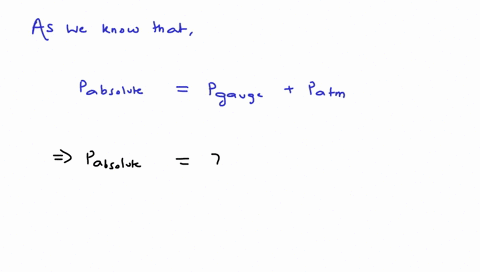 As we know that,
Pabsolute = Pgauge + Patm
=> Pabsolute =